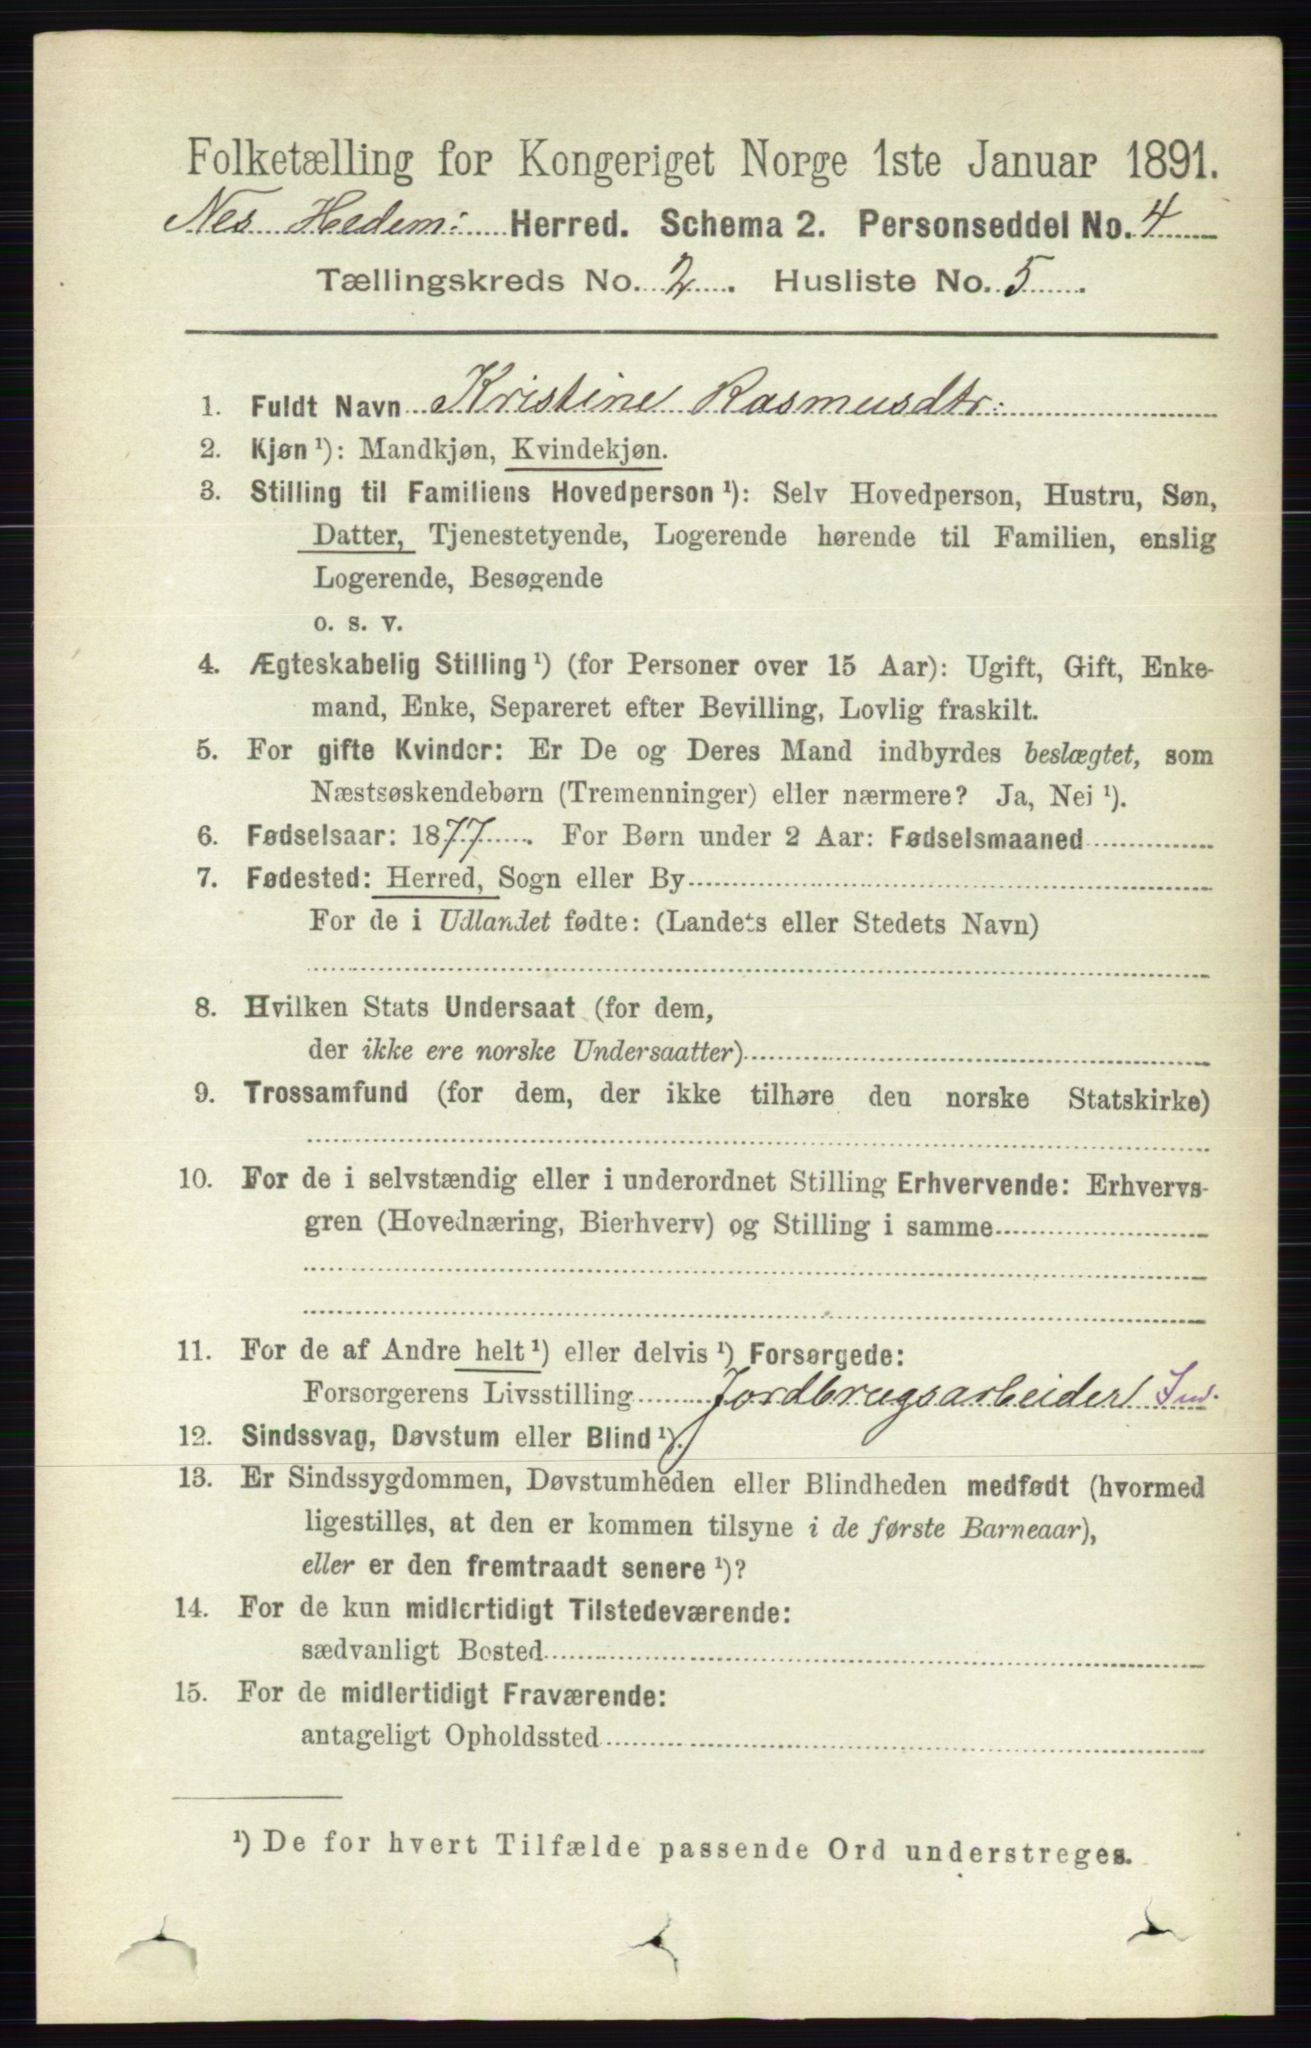 Folketælling for Kongeriget Norge 1ste Januar 1891.
Nes Hedem: Herred. Schema 2. Personseddel No. 4
Tællingskreds No. 2. Husliste No. 5.
1. Fuldt Navn Kristine Rasmusdtr:
2. Kjøn ¹): Mandkjøn, Kvindekjøn.
3. Stilling til Familiens Hovedperson ¹): Selv Hovedperson, Hustru, Søn,
Datter, Tjenestetyende, Logerende hørende til Familien, enslig
Logerende, Besøgende
o. s. v.
4. Ægteskabelig Stilling ¹) (for Personer over 15 Aar): Ugift, Gift, Enke-
mand, Enke, Separeret efter Bevilling, Lovlig fraskilt.
5. For gifte Kvinder: Er De og Deres Mand indbyrdes beslægtet, som
Næstsøskendebørn (Tremenninger) eller nærmere? Ja, Nei ¹).
6. Fødselsaar: 1877. For Børn under 2 Aar: Fødselsmaaned
7. Fødested: Herred, Sogn eller By
For de i Udlandet fødte: (Landets eller Stedets Navn)
8. Hvilken Stats Undersaat (for dem,
der ikke ere norske Undersaatter)
9. Trossamfund (for dem, der ikke tilhøre den norske Statskirke)
10. For de i selvstændig eller i underordnet Stilling Erhvervende: Erhvervs-
gren (Hovednæring, Bierhverv) og Stilling i samme
11. For de af Andre helt ¹) eller delvis ¹) Forsørgede:
Forsørgerens Livsstilling Jordbrugsarbeider Ind.
12. Sindssvag, Døvstum eller Blind ¹).
13. Er Sindssygdommen, Døvstumheden eller Blindheden medfødt (hvormed
ligestilles, at den er kommen tilsyne i de første Barneaar),
eller er den fremtraadt senere ¹)?
14. For de kun midlertidigt Tilstedeværende:
sædvanligt Bosted
15. For de midlertidigt Fraværende:
antageligt Opholdssted
¹) De for hvert Tilfælde passende Ord understreges.